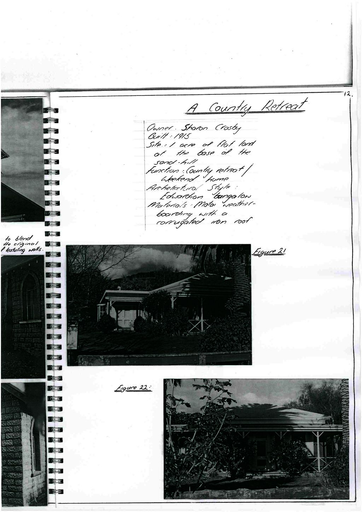 12.
A Country Retreat
Owner: Sharon Crosby
Built: 1915
Site: 1 acre of flat land
at the base of the
sand-hill
Function: Country retreat /
weekend home
Architectural Style:
Edwardian bungalow
Materials: weather-
boarding with a
corrugated iron roof
to blend
the original
Figure 21
Figure 22: